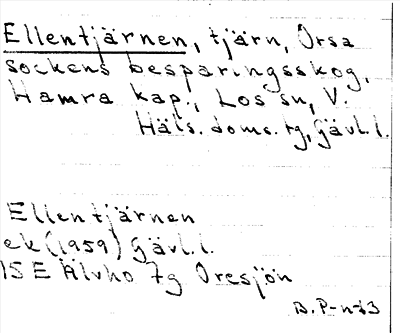 Ellentjärnen, tjärn, Orsa
sockens besparingsskog,
Hamra kap., Los sn, V.
Häls. doms. tg, Gävl. l.
Ellentjärnen
ek (1959) Gävl. l.
15 E Älvho 7g Oresjön
B. P-n